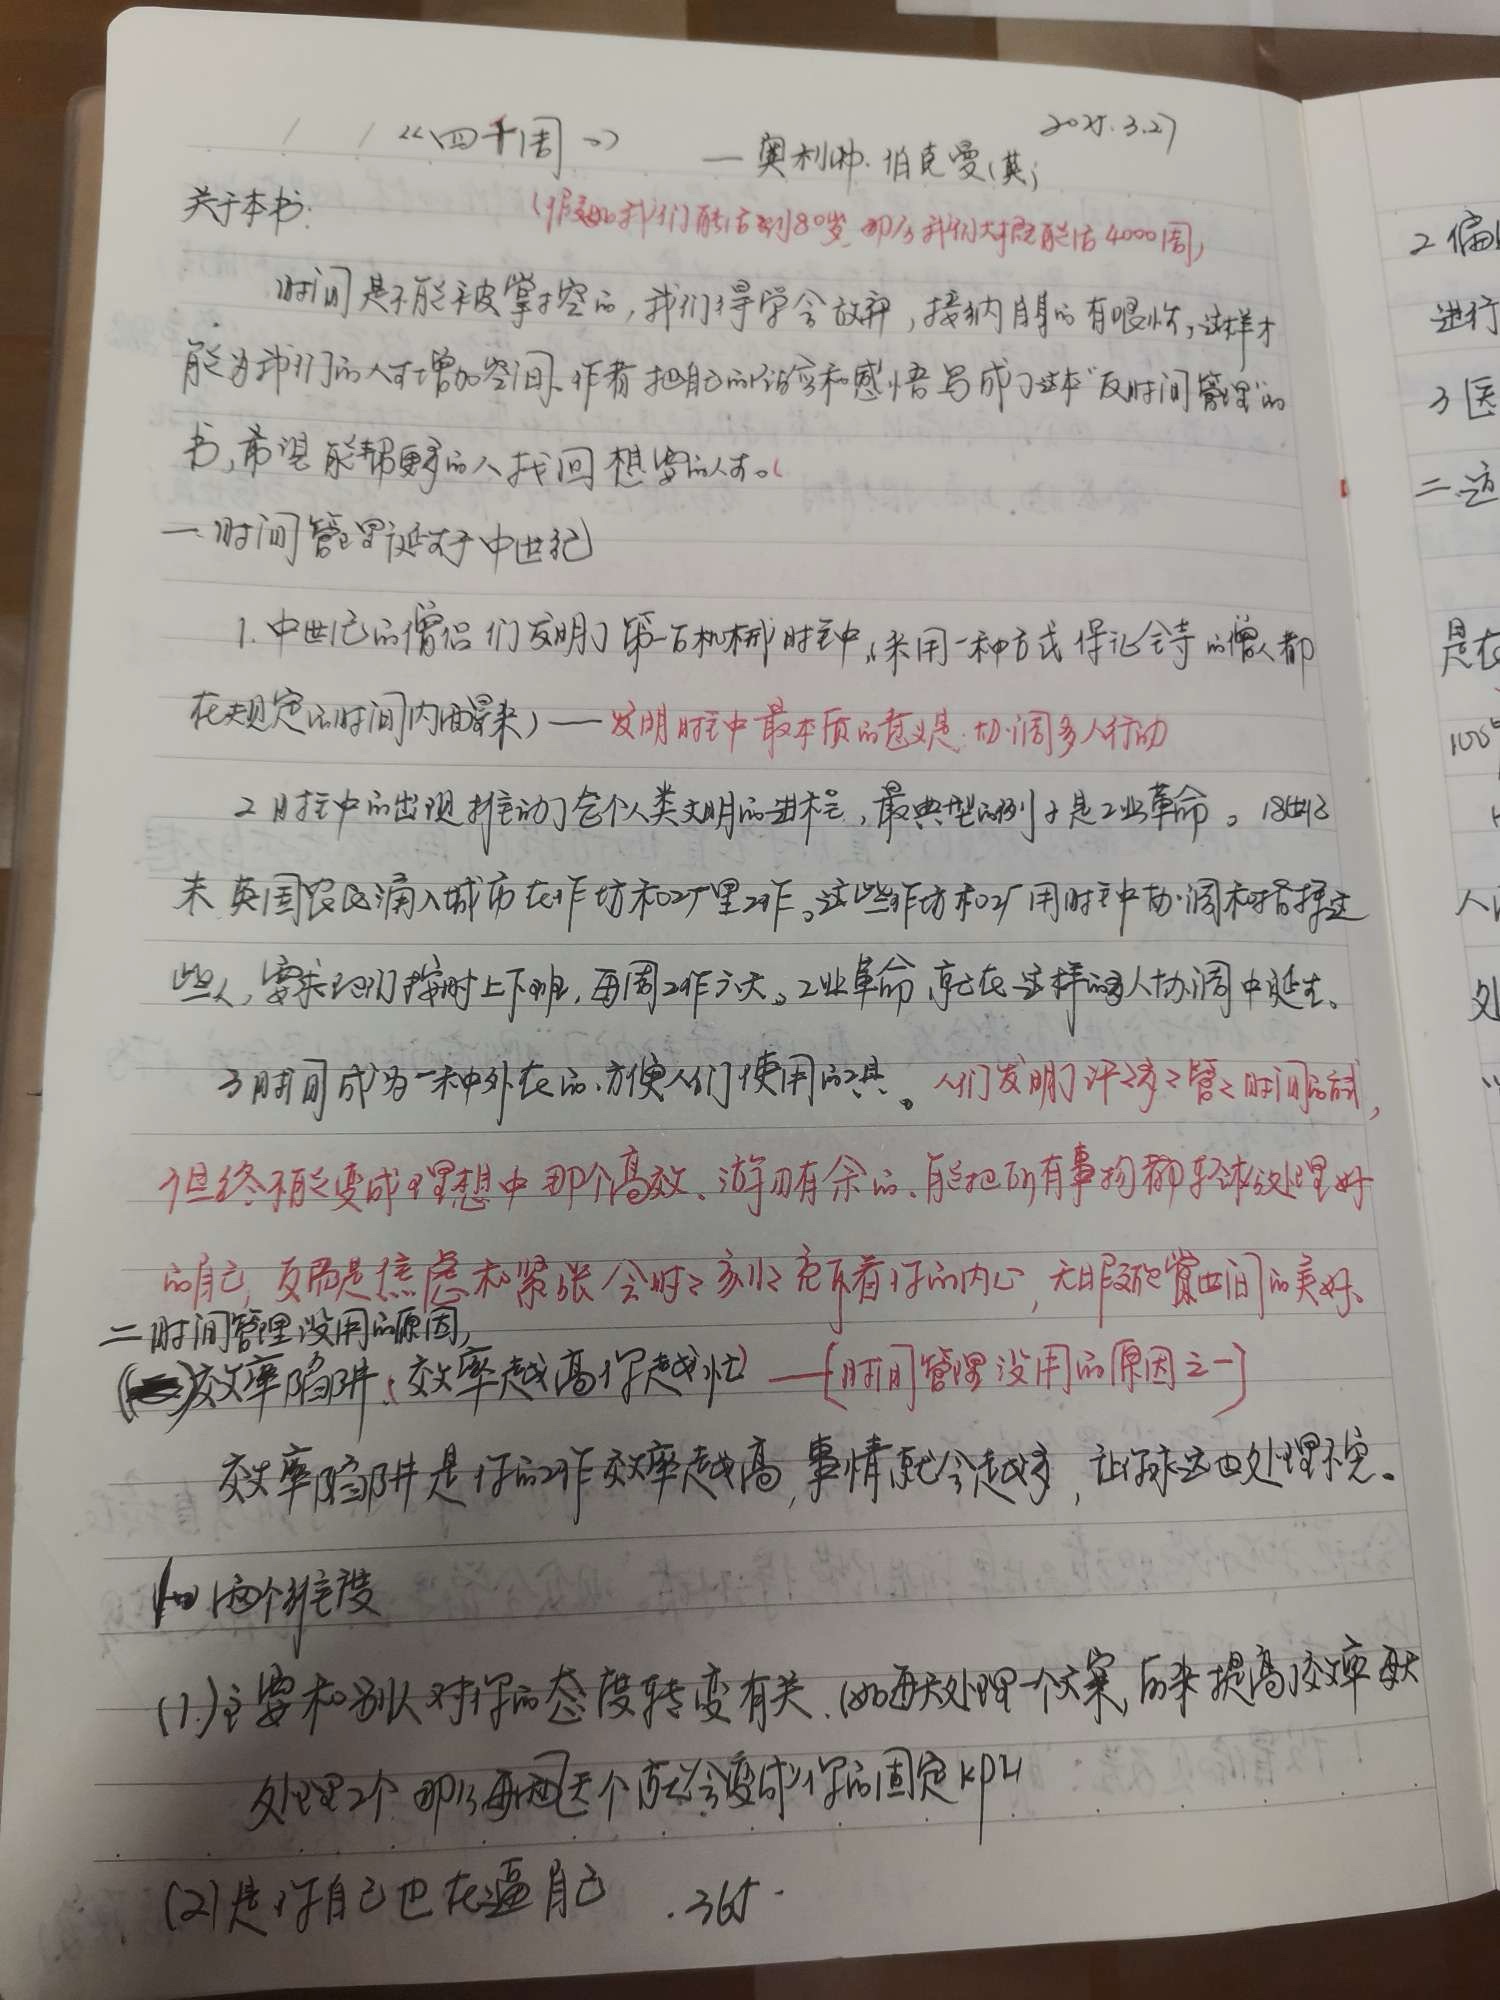 《四千周》 2025.3.27
—奥利弗·伯克曼(英)
关于本书: (假如我们能活到80岁,那么我们大概能活4000周)
时间是不能被掌控的,我们得学会放弃,接纳自身的有限性,这样才
能为我们的人生增加空间、作者把自己的经验和感悟写成了这本"反时间管理"的
书,希望能帮更多的人找回想要的人生。
一.时间管理诞生于中世纪
1. 中世纪的僧侣们发明了第一台机械时钟,(采用一种方式保证全寺的僧人都
在规定的时间内爬起来)——发明时钟最本质的意义是:协调多人行动
2 时钟的出现推动了全个人类文明的进程,最典型的例子是工业革命。18世纪
末英国农民涌入城市在作坊和工厂里工作。这些作坊和工厂用时钟协调和指挥这
些人,要求他们按时上下班,每周工作六天。工业革命就在这样的多人协调中诞生。
3 时间成为一种外在的、方便人们使用的工具。人们发明了许多管理时间的方式,
但终不能变成理想中那个高效、游刃有余的、能把所有事物都轻松处理好
的自己,反而是焦虑和紧张会时时刻刻充斥着你的内心,无暇欣赏世间的美好、
二 时间管理没用的原因,
( )效率陷阱:效率越高你越忙 —[时间管理没用的原因之一]
效率陷阱是你的工作效率越高,事情就会越多,让你永远也处理不完。
两个维度
(1.)主要和别人对你的态度转变有关.(如每天处理一个文案,后来提高了效率每天
处理2个 那么每天 个就会变成你的固定KPI
(2)是你自己也在逼自己 .365.
2 偏
进行
3 医
二.
是在
100
人
处